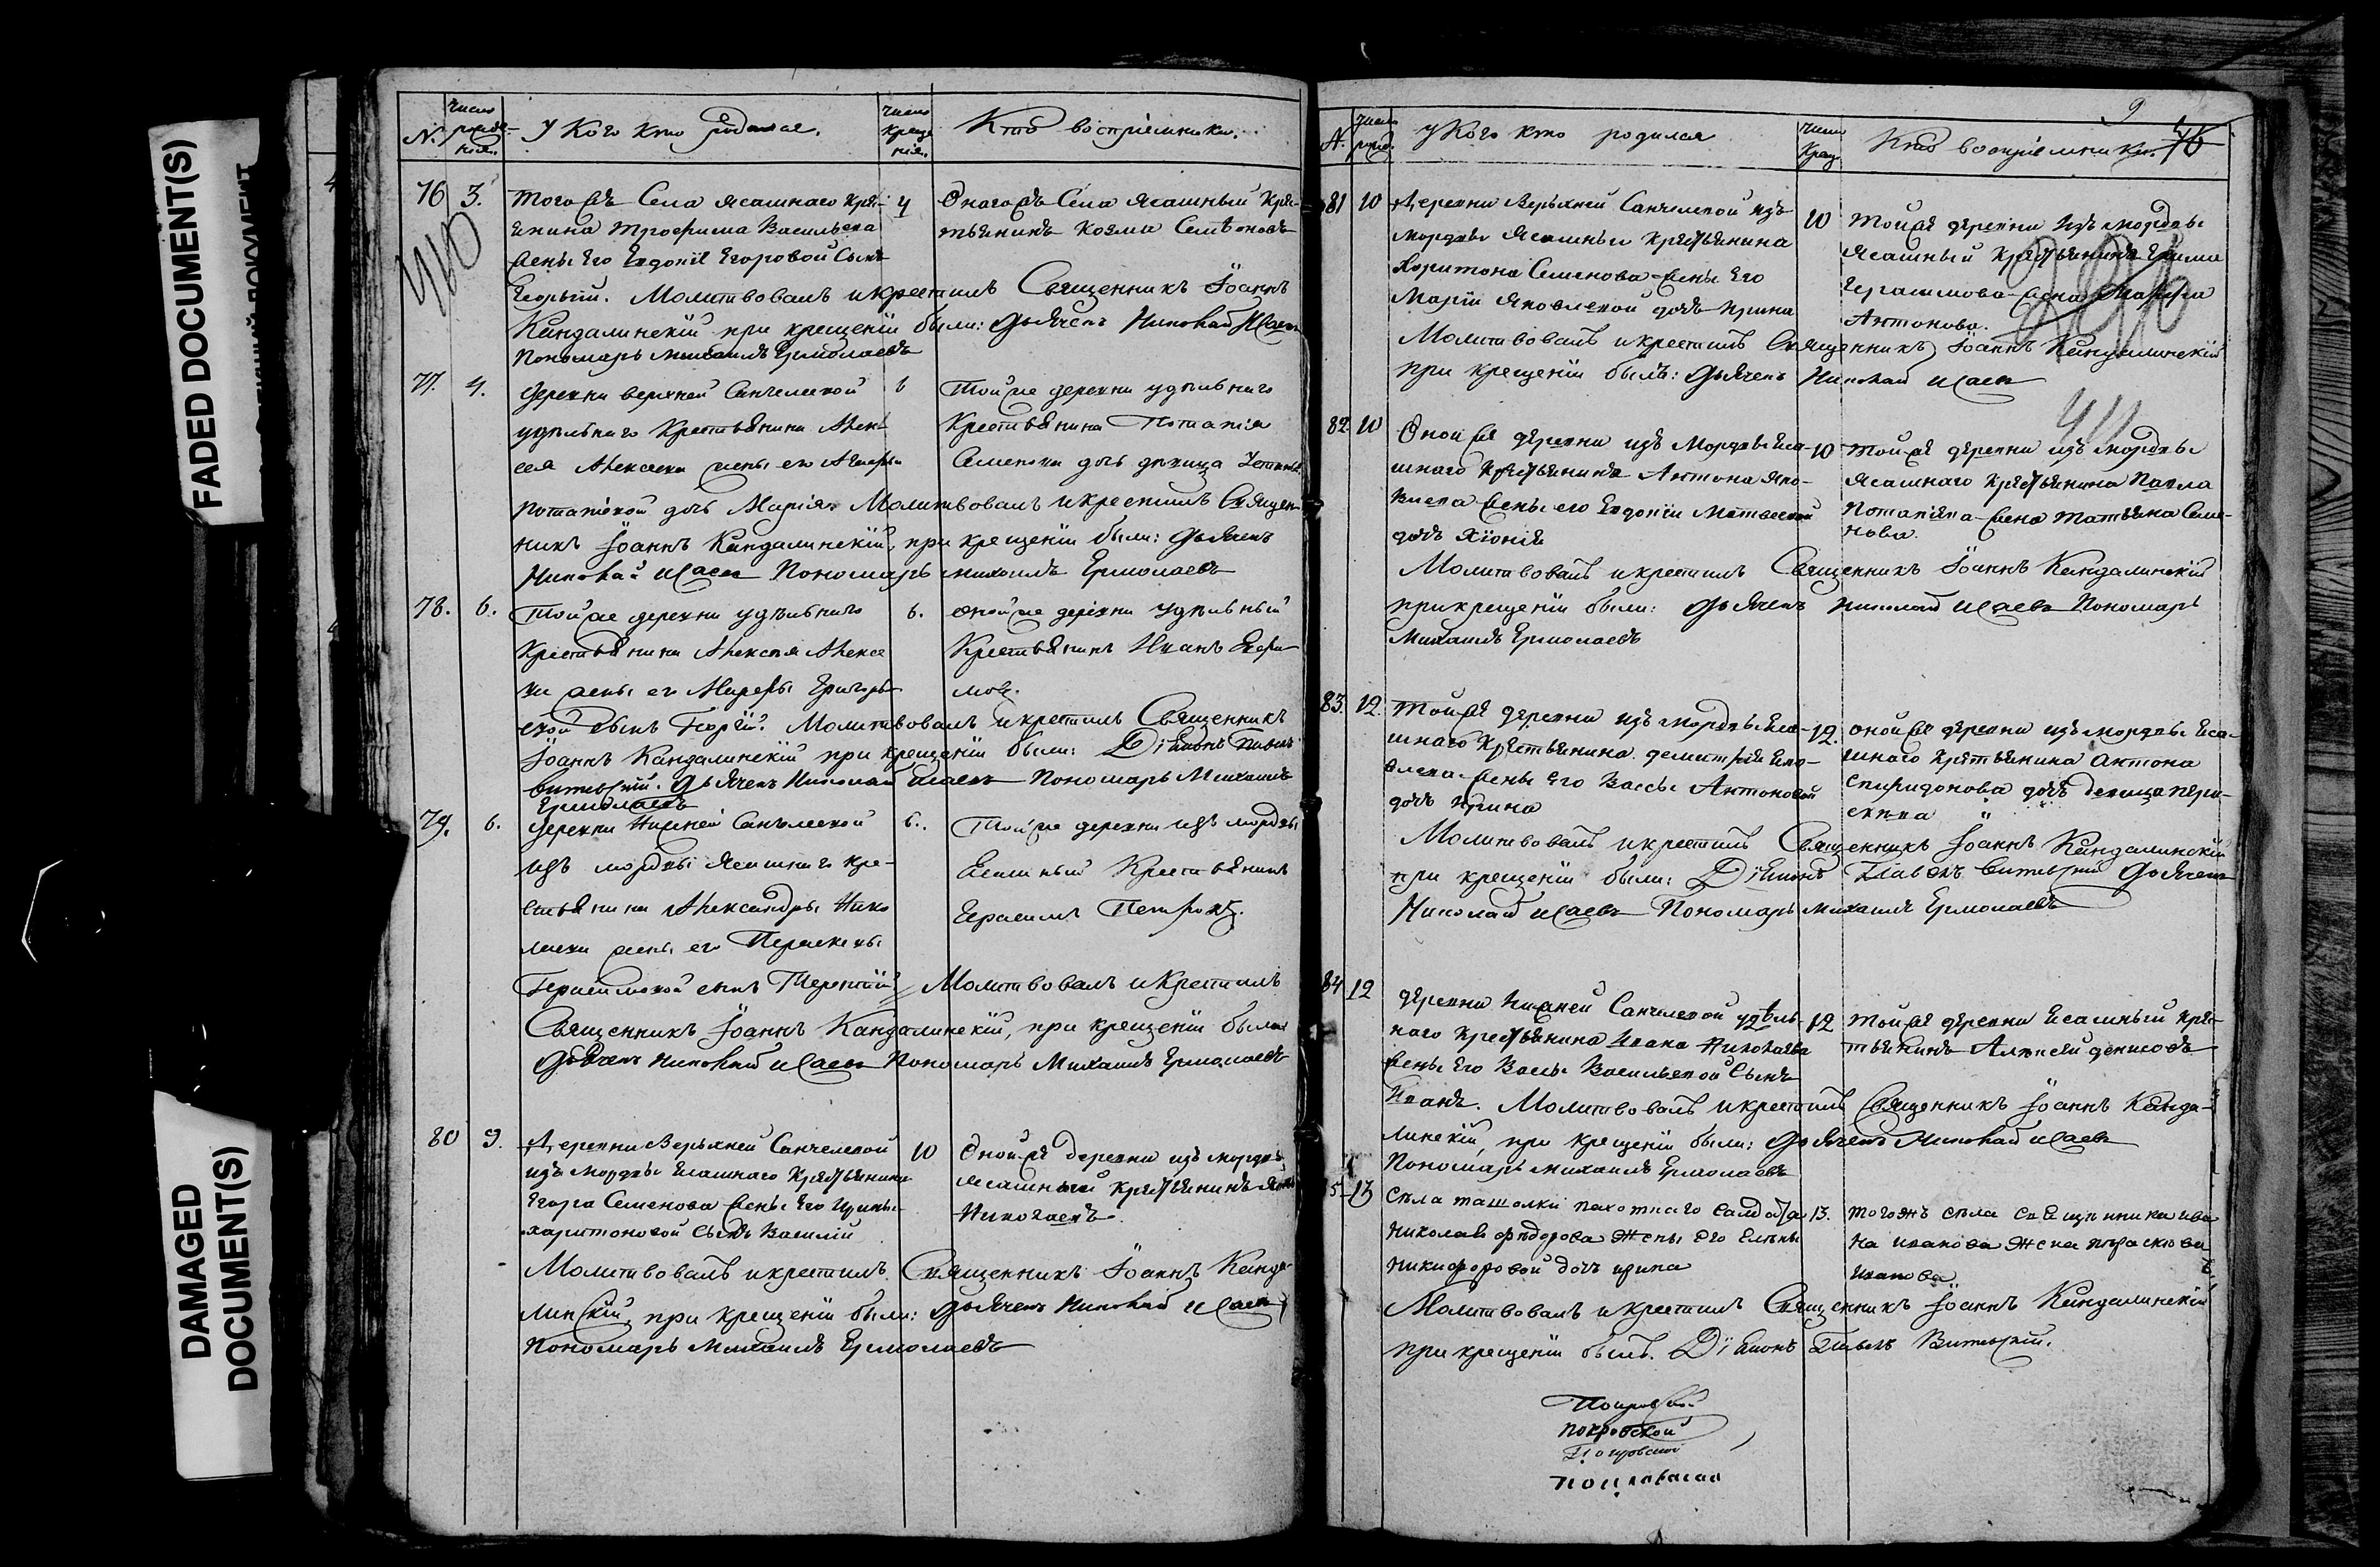 FADED DOCUMENT(S)
DAMAGED
DOCUMENT(S)
№.
число
рожде-
нія.
У Кого кто родился.
число
креще
нія.
Кто воспріемники.
76 3.
Тогожъ Села ясашнаго Кре-
янина Трофима Васильева
жены Его Евдокіи Егоровой Сынъ
Георгий. Молитвовалъ и крестилъ Священникъ Іоаннъ
Кандалинскій при крещеніи были: Дьячекъ Николай Исаевъ
Пономарь Михаилъ Ермолаевъ
4
Оногожъ Села Ясашный Крес-
тьянинъ Козма Семеновъ
410
77. 4.
Деревни верхней Санчелеевой
удѣльнаго Крестьянина Алек
сея Алексеева жены его
Потапіевой дочь Марія. Молитвовалъ и крестилъ Священ-
никъ Іоаннъ Кандалинскій, при крещеніи были: Дьячекъ
Николай Исаевъ Пономарь Михаилъ Ермолаевъ
6
Тойже деревни удѣльнаго
Крестьянина Потапія
Семенова дочь дѣвица
78. 6.
Тойже деревни удѣльнаго
Крестьянина Алексѣя Алексе
ва жены его Марфы Григорь
евой сынъ Георгій. Молитвовалъ и крестилъ Священникъ
Іоаннъ Кандалинскій при крещеніи были: Діаконъ Павелъ
Витевский. Дьячекъ Николай Исаевъ Пономарь Михаилъ
Ермолаевъ
6.
оной же деревни Удѣльный
Крестьянинъ Иванъ Ефи
мовъ.
79. 6.
Деревни Нижней Санчелеевой
изъ мордвы Ясашнаго кре-
стьянина Александра Нико
лаева жены его Парасковьи
Герасимовой сынъ Терентій Молитвовалъ и Крестилъ
Священникъ Іоаннъ Кандалинскій, при крещеніи были
Дьячекъ Николай Исаевъ Пономарь Михаилъ Ермолаевъ
6.
Тойже деревни изъ мордвы
Есашный Крестьянинъ
Герасимъ Петровъ.
80 9.
Деревни Верьхней Санчелеевой
изъ Мордвы Есашнаго Крестьянина
Егора Семенова жены Его Ирины
Харитоновой Сынъ Василій
Молитвовалъ и крестилъ Священникъ Іоаннъ Канда
линскій, при крещеніи были: Дьячекъ Николай Исаевъ
Пономарь Михаилъ Ермолаевъ
10
Оной же деревни изъ мордвы
Ясашный Крестьянинъ
Николаевъ.
9
76
№.
число
рожд.
у Кого кто родился
число
Крещ
Кто воспріемники.
81 10
Деревни Верьхней Санчелеевой изъ
мордвы Ясашный Крестьянина
Харитона Семенова жены Его
Маріи Яковлевой дочь Ирина
Молитвовалъ и крестилъ Священникъ Іоаннъ Кандалинскій
при крещеніи былъ: Дьячекъ Николай Исаевъ
10
Тойже деревни Изъ мордвы
Ясашный Крестьянинъ
Герасимова жена Марфа
Антонова.
411
82 10
Оной же деревни изъ Мордвы Еса-
шнаго Крестьянинъ Антона Яко-
влева жены его Евдокіи Матвеевой
дочь Хіонія
Молитвовалъ и крестилъ Священникъ Іоаннъ Кандалинскій
при крещеніи были: Дьячекъ Николай Исаевъ Пономарь
Михаилъ Ермолаевъ
10
Тойже деревни изъ мордвы
Ясашнаго Крестьянина Павла
Потапіева жена Татьяна Семе-
нова.
83. 12.
Тойже деревни изъ мордвы Еса-
шнаго Крестьянина демитрія Яко-
влева жены Его Вассы Антоновой
дочь Ирина
Молитвовалъ и крестилъ Священникъ Іоаннъ Кандалинскій
при крещеніи были: Діаконъ Павелъ Витевский Дьячекъ
Николай Исаевъ Пономарь Михаилъ Ермолаевъ
12.
оной же деревни изъ мордвы Еса-
шнаго Крестьянина Антона
Спиридонова дочь девица пара-
84 12
деревни Нижней Санчелеевой удѣль-
наго Крестьянина Ивана Николаева
жены Его Вассы Васильевой Сынъ
Иванъ. Молитвовалъ и крестилъ Священникъ Іоаннъ Канда-
линскій, при крещеніи были: Дьячекъ Николай Исаевъ
Пономарь Михаилъ Ермолаевъ
12
Тойже деревни Есашный Крес-
тьянинъ Алексей денисовъ
5 13
Села ташолки пахотнаго салдата
Николая Федорова жены Его Елены
Никифоровой дочъ ирина
Молитвовалъ и крестилъ Священникъ Іоаннъ Кандалинскій
при крещеніи былъ. Діаконъ Павелъ Витевский.
13.
тогожъ села священника ива
на иванова жена праскови
иванова
Покровской